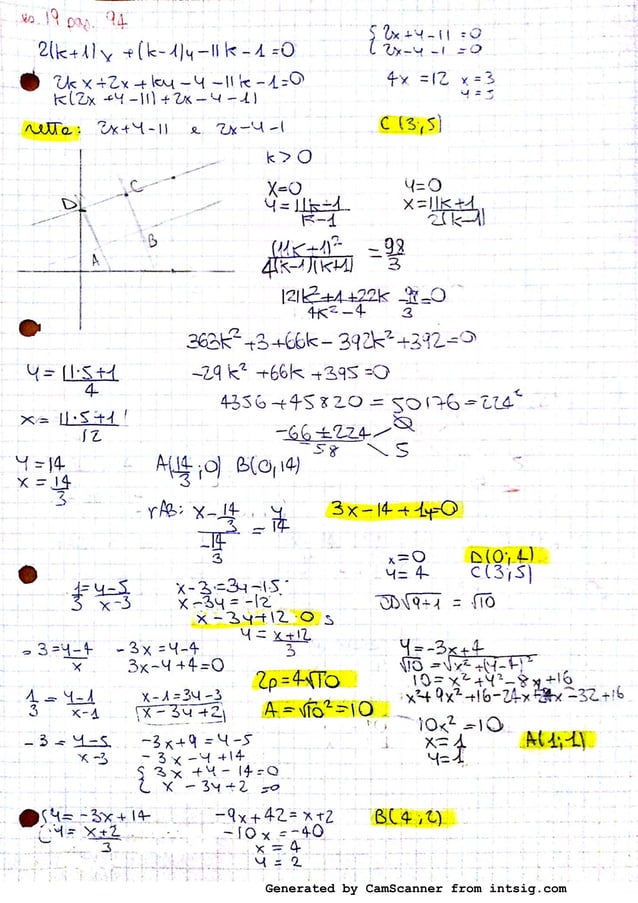 no. 19 pag. 94
2(k+1)x + (k-1)y-11k-1=0
{2x+y-11=0
{2x-y-1=0
2kx+2x+ky-y-11k-1=0
k(2x+y-11)+2x-y-1)
4x=12 x=3
y=5
rette: 2x+y-11 e 2x-y-1
C(3;5)
k>0
x=0
y=11k+1/k-1
y=0
x=11k+1/2(k-1)
(11k+1)²/4(k-1)(k+1) = 98/3
D
C
B
A
121k²+1+22k/4k²-4 - 98/3=0
363k²+3+66k-392k²+392=0
y=11·5+1/4
-29k²+66k+395=0
x=11·5+1/12
4356+45820=50176=224²
-66±224/58
5
y=14
x=14/3
A(14/3;0) B(0,14)
rAB: x-14/3/-14/3 = y/14
3x-14+1y=0
x=0
y=4
D(0;4)
C(3;5)
1/3=y-5/x-3
x-3=3y-15
x-3y=-12
x-3y+12=0
y=x+12/3
√9+1=√10
-3=y-4/x
-3x=y-4
3x-y+4=0
y=-3x+4
√10=√x²+(y-4)²
10=x²+y²-8y+16
2p=4√10
1/3=y-1/x-1
x-1=3y-3
x-3y+2
A=√10²=10
10x²=10
x=1
y=1
A(1;1)
-3=y-5/x-3
-3x+9=y-5
-3x-y+14
{3x+y-14=0
{x-3y+2=0
{y=-3x+14
{y=x+2/3
-9x+42=x+2
-10x=-40
x=4
y=2
B(4;2)
Generated by CamScanner from intsig.com